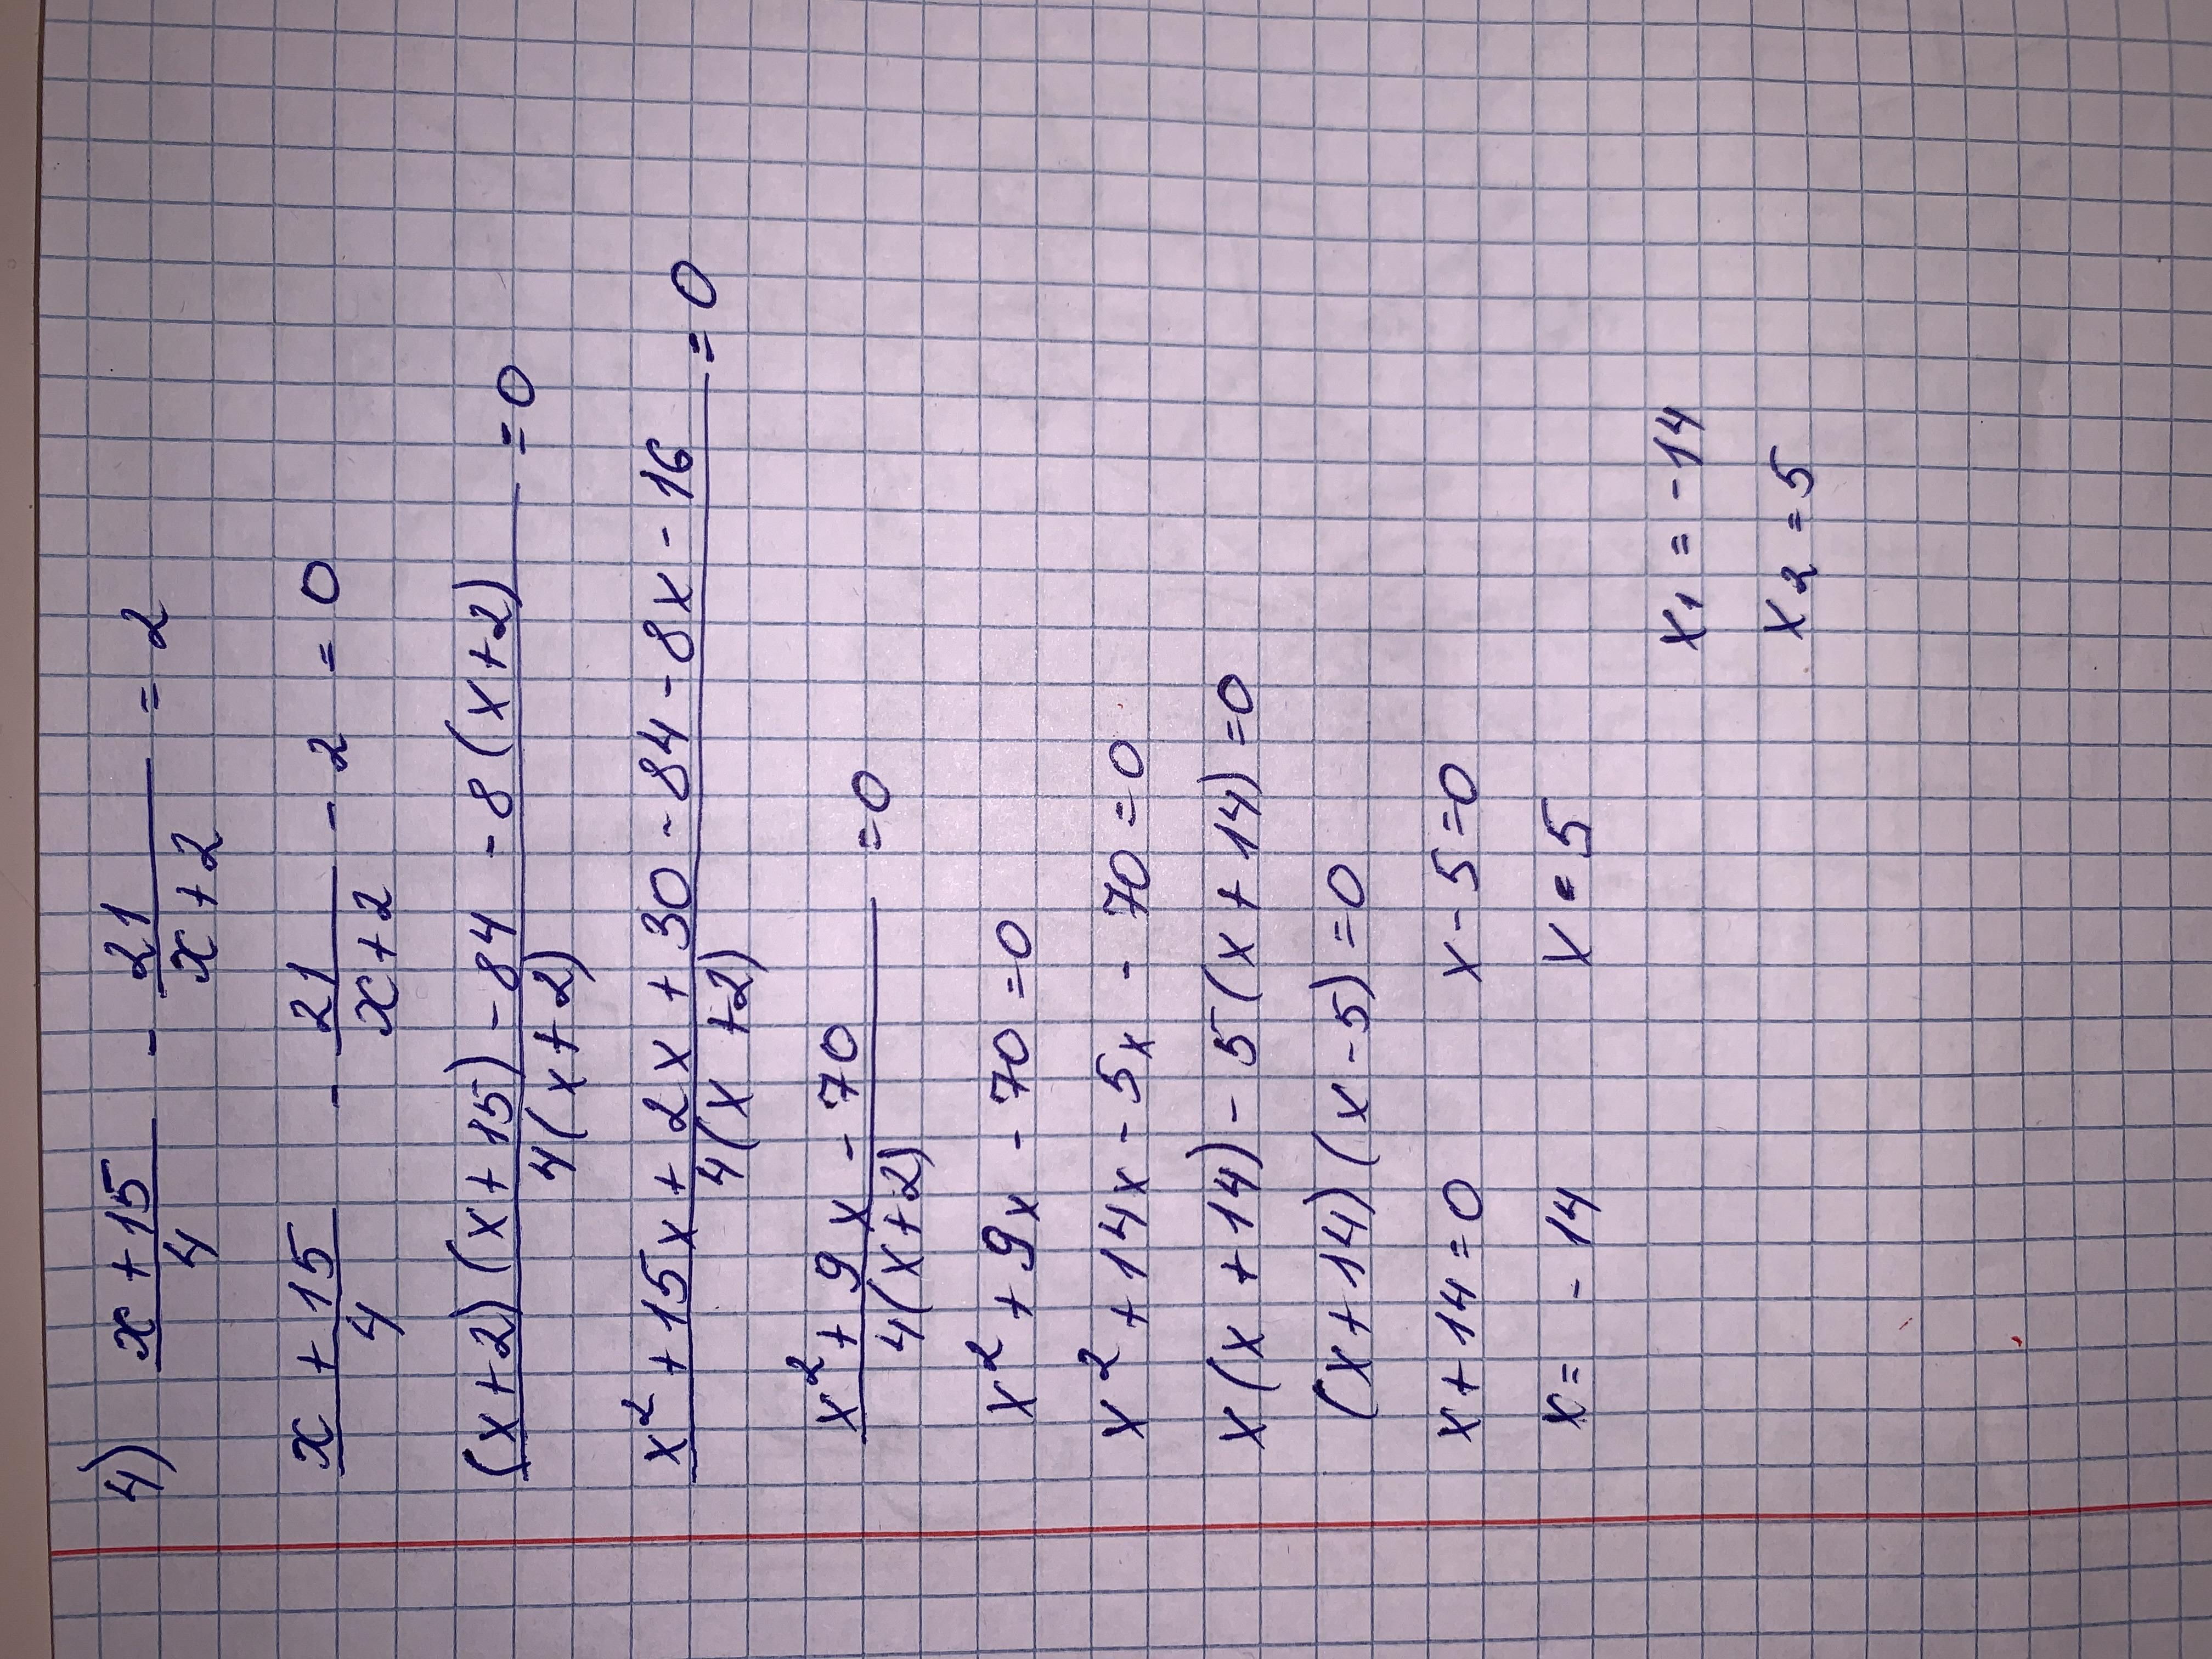 4) (x+15)/4 - 21/(x+2) = 2
(x+15)/4 - 21/(x+2) - 2 = 0
((x+2)(x+15) - 84 - 8(x+2))/(4(x+2)) = 0
(x² + 15x + 2x + 30 - 84 - 8x - 16)/(4(x+2)) = 0
(x² + 9x - 70)/(4(x+2)) = 0
x² + 9x - 70 = 0
x² + 14x - 5x - 70 = 0
x(x+14) - 5(x+14) = 0
(x+14)(x-5) = 0
x+14=0 x-5=0
x = -14 x = 5
x₁ = -14
x₂ = 5